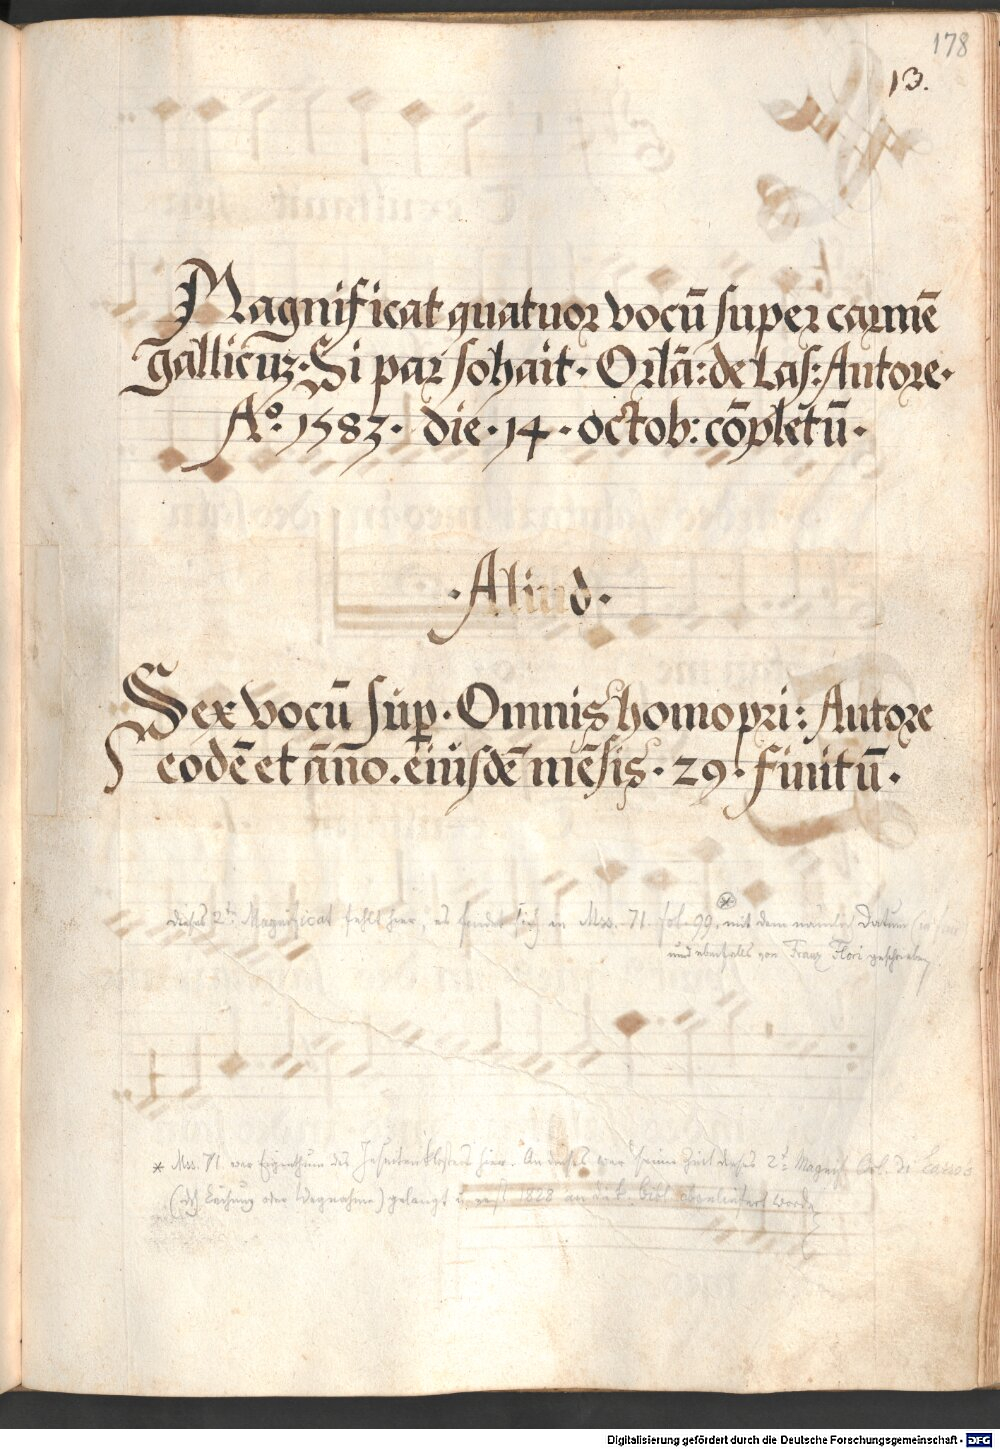 178
13.
Magnificat quatuor vocū super carmē
gallicuʒ · Si par sohait · Orlā: de Las: Autore ·
Aº. 1583 · die · 14 · octob: cōpletū ·
· Aliud ·
Sex vocū sup · Omnis homo pri: Autore
eodē et āno . eiusdē mēsis · 29 · finitū ·
dieses 2te Magnificat fehlt hier, es findet sich in Mss. 71 fol. 99, mit dem Datum
und ebenfalls von Franz Flori geschrieben
* Mss. 71 war Eigenthum des hier. 2t Magnif. Orl. di Lasso's
oder Wegnahme) gelangt 1828 an Bibl. worden
Digitalisierung gefördert durch die Deutsche Forschungsgemeinschaft - DFG